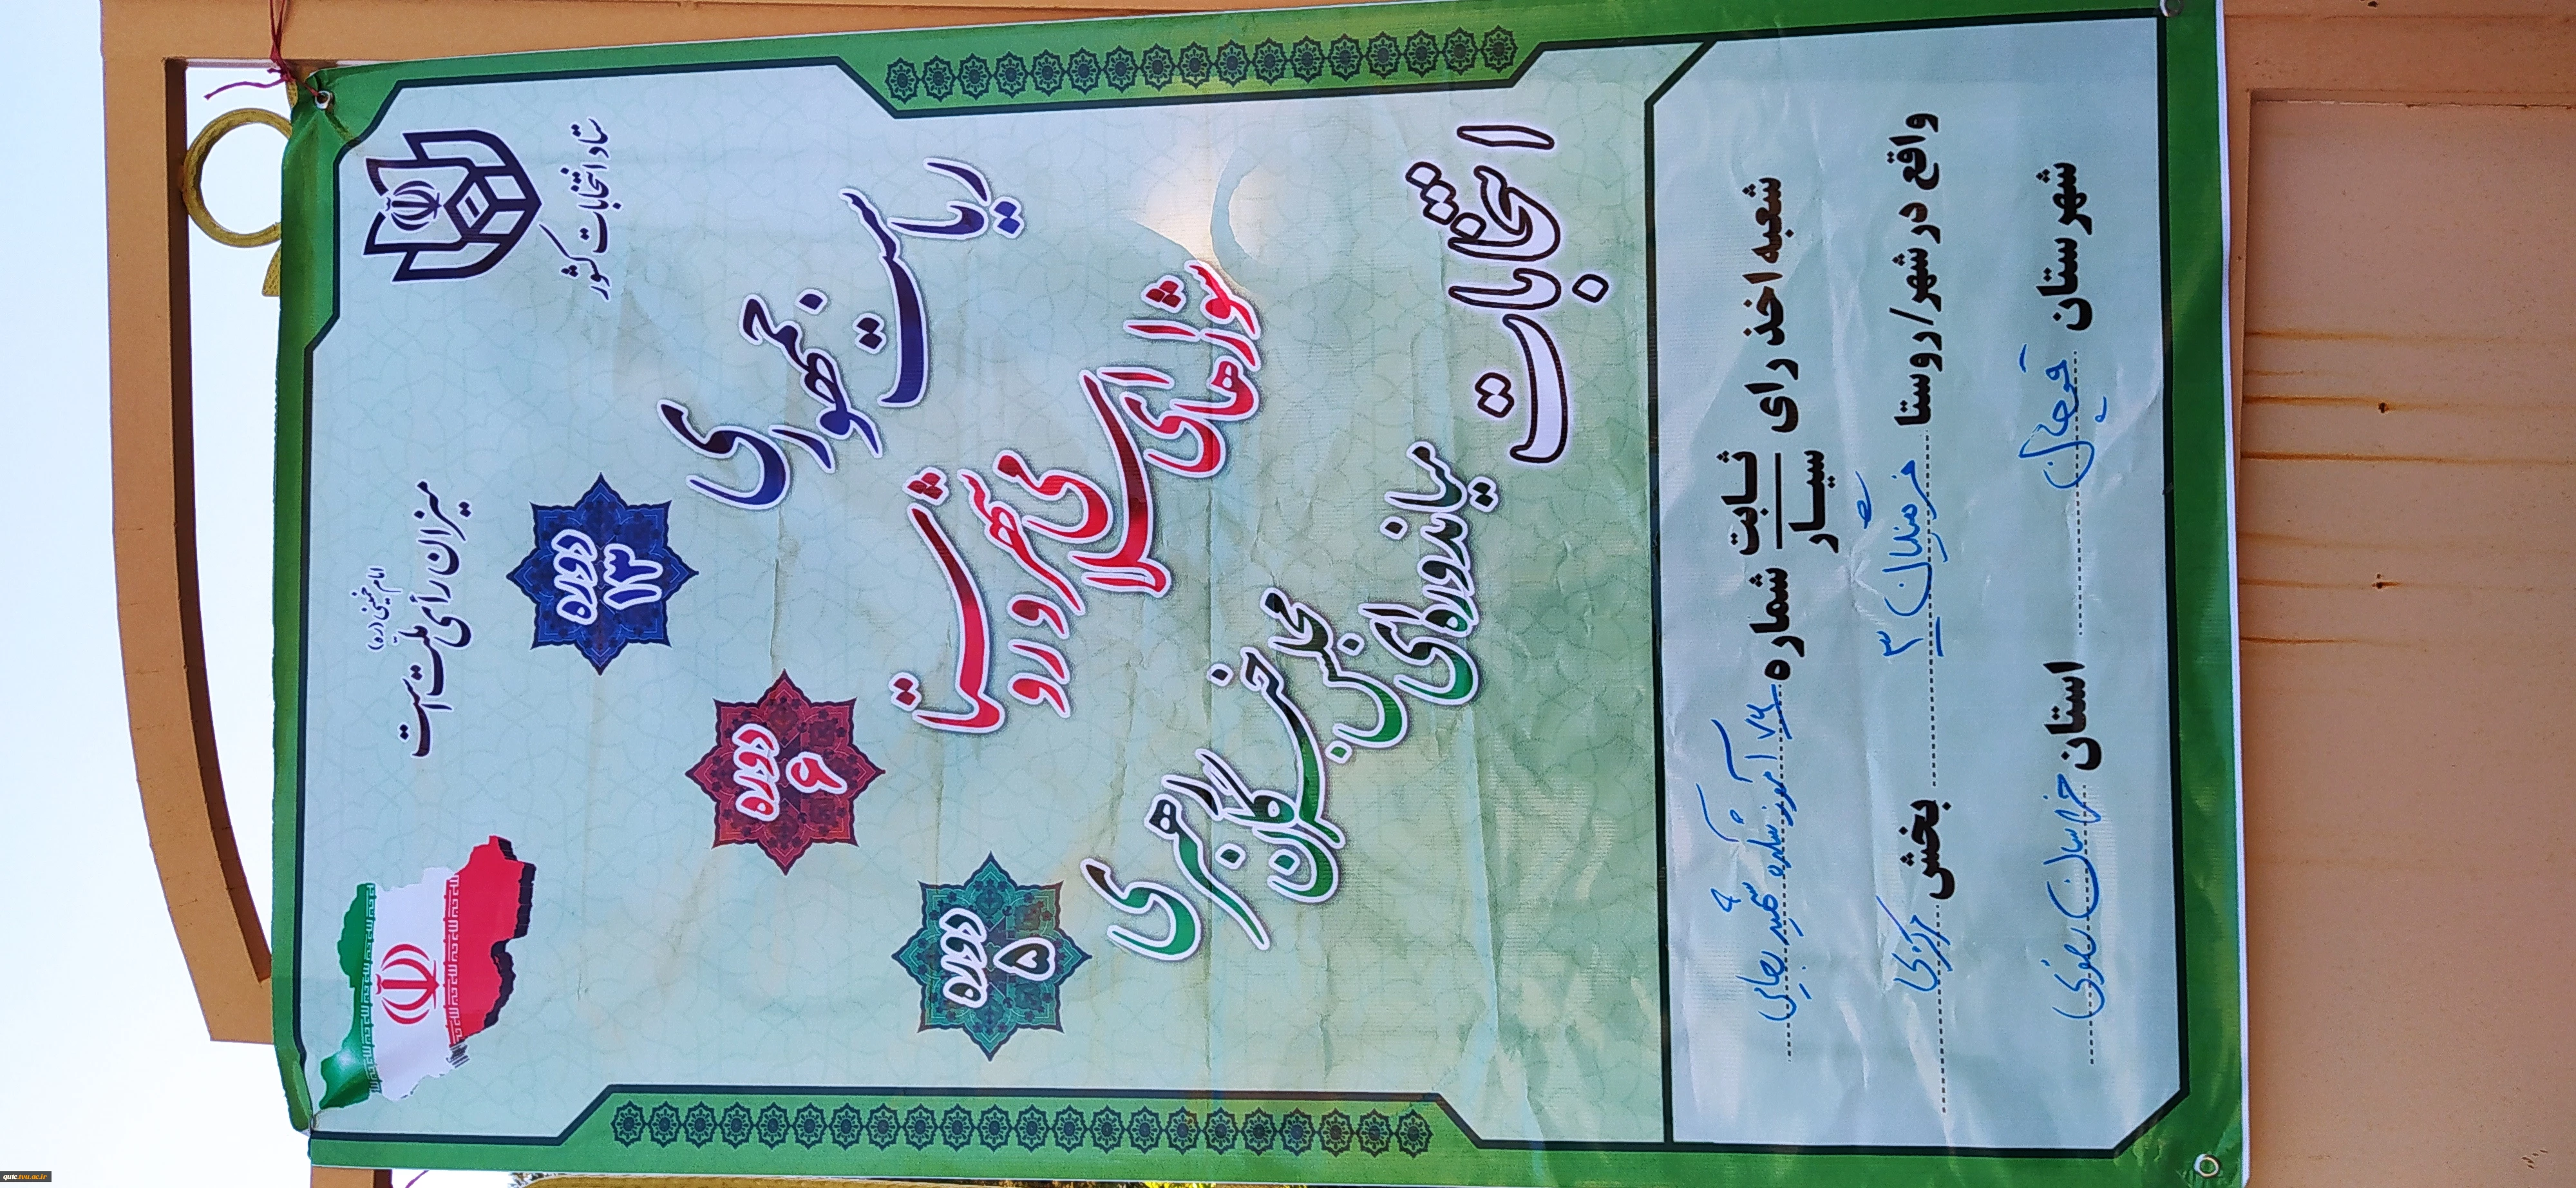 ستاد انتخابات کشور
میزان رأی ملت است
امام خمینی (ره)
ریاست جمهوری
دوره ۱۳
شوراهای اسلامی شهر و روستا
دوره ۶
میاندوره‌ای مجلس خبرگان رهبری
دوره ۵
انتخابات
شعبه اخذ رای ثابت سیار شماره ۱۷۶ آموزشکده شهید رجایی
واقع در شهر/روستا ۳ بخش مرکزی
شهرستان قوچان استان خراسان رضوی
quic.tvu.ac.ir